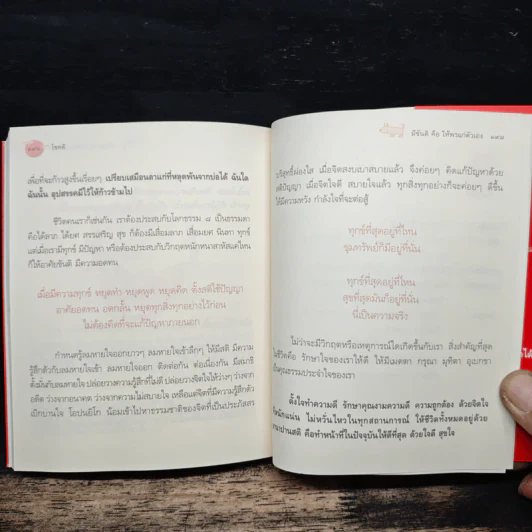 โชคดี
เพื่อที่จะก้าวสูงขึ้นเรื่อยๆ เปรียบเสมือนลาแก่ที่หลุดพ้นจากบ่อได้ ฉันใด
ฉันนั้น อุปสรรคมีไว้ให้ก้าวข้ามไป
ชีวิตคนเราก็เช่นกัน เราต้องประสบกับโลกธรรม ๘ เป็นธรรมดา
คือได้ลาภ ได้ยศ สรรเสริญ สุข ก็ต้องมีเสื่อมลาภ เสื่อมยศ นินทา ทุกข์
แต่เมื่อเรามีทุกข์ มีปัญหา หรือต้องประสบกับวิกฤตหนักหนาสาหัสแค่ไหน
ก็ให้อาศัยขันติ มีความอดทน
เมื่อมีความทุกข์ หยุดทำ หยุดพูด หยุดคิด ตั้งสติใช้ปัญญา
อาศัยอดทน อดกลั้น หยุดทุกสิ่งทุกอย่างไว้ก่อน
ไม่ต้องคิดที่จะแก้ปัญหาภายนอก
กำหนดรู้ลมหายใจออกยาวๆ ลมหายใจเข้าลึกๆ ให้มีสติ มีความ
รู้สึกตัวกับลมหายใจเข้า ลมหายใจออก ติดต่อกัน ต่อเนื่องกัน มีสมาธิ
ตั้งมั่นกับลมหายใจ ปล่อยวางความรู้สึกที่ไม่ดี ปล่อยวางจิตใจให้ว่างๆ ว่างจาก
อดีต ว่างจากอนาคต ว่างจากความไม่สบายใจ เหลือแต่จิตที่มีความรู้สึกตัว
เบิกบานใจ โอปนยิโก น้อมเข้าไปหาธรรมชาติของจิตที่เป็นประภัสสร
มีขันติ คือ ให้พรแก่ตัวเอง ๑๔๗
บริสุทธิ์ผ่องใส เมื่อจิตสงบเบาสบายแล้ว จึงค่อยๆ คิดแก้ปัญหาด้วย
สติปัญญา เมื่อจิตใจดี สบายใจแล้ว ทุกสิ่งทุกอย่างก็จะค่อยๆ ดีขึ้น
ให้มีความหวัง กำลังใจที่จะต่อสู้
ทุกข์ที่สุดอยู่ที่ไหน
ขุมทรัพย์ก็มีอยู่ที่นั่น
ทุกข์ที่สุดอยู่ที่ไหน
สุขที่สุดมันก็อยู่ที่นั่น
นี่เป็นความจริง
ไม่ว่าจะมีวิกฤตหรือเหตุการณ์ใดเกิดขึ้นกับเรา สิ่งสำคัญที่สุด
ในชีวิตคือ รักษาใจของเราให้ดี ให้มีเมตตา กรุณา มุทิตา อุเบกขา
เป็นคุณธรรมประจำใจของเรา
ตั้งใจทำความดี รักษาคุณงามความดี ความถูกต้อง ด้วยจิตใจ
หนักแน่น ไม่หวั่นไหวในทุกสถานการณ์ ให้ชีวิตทั้งหมดอยู่ด้วย
อานาปานสติ คือทำหน้าที่ในปัจจุบันให้ดีที่สุด ด้วยใจดี สุขใจ